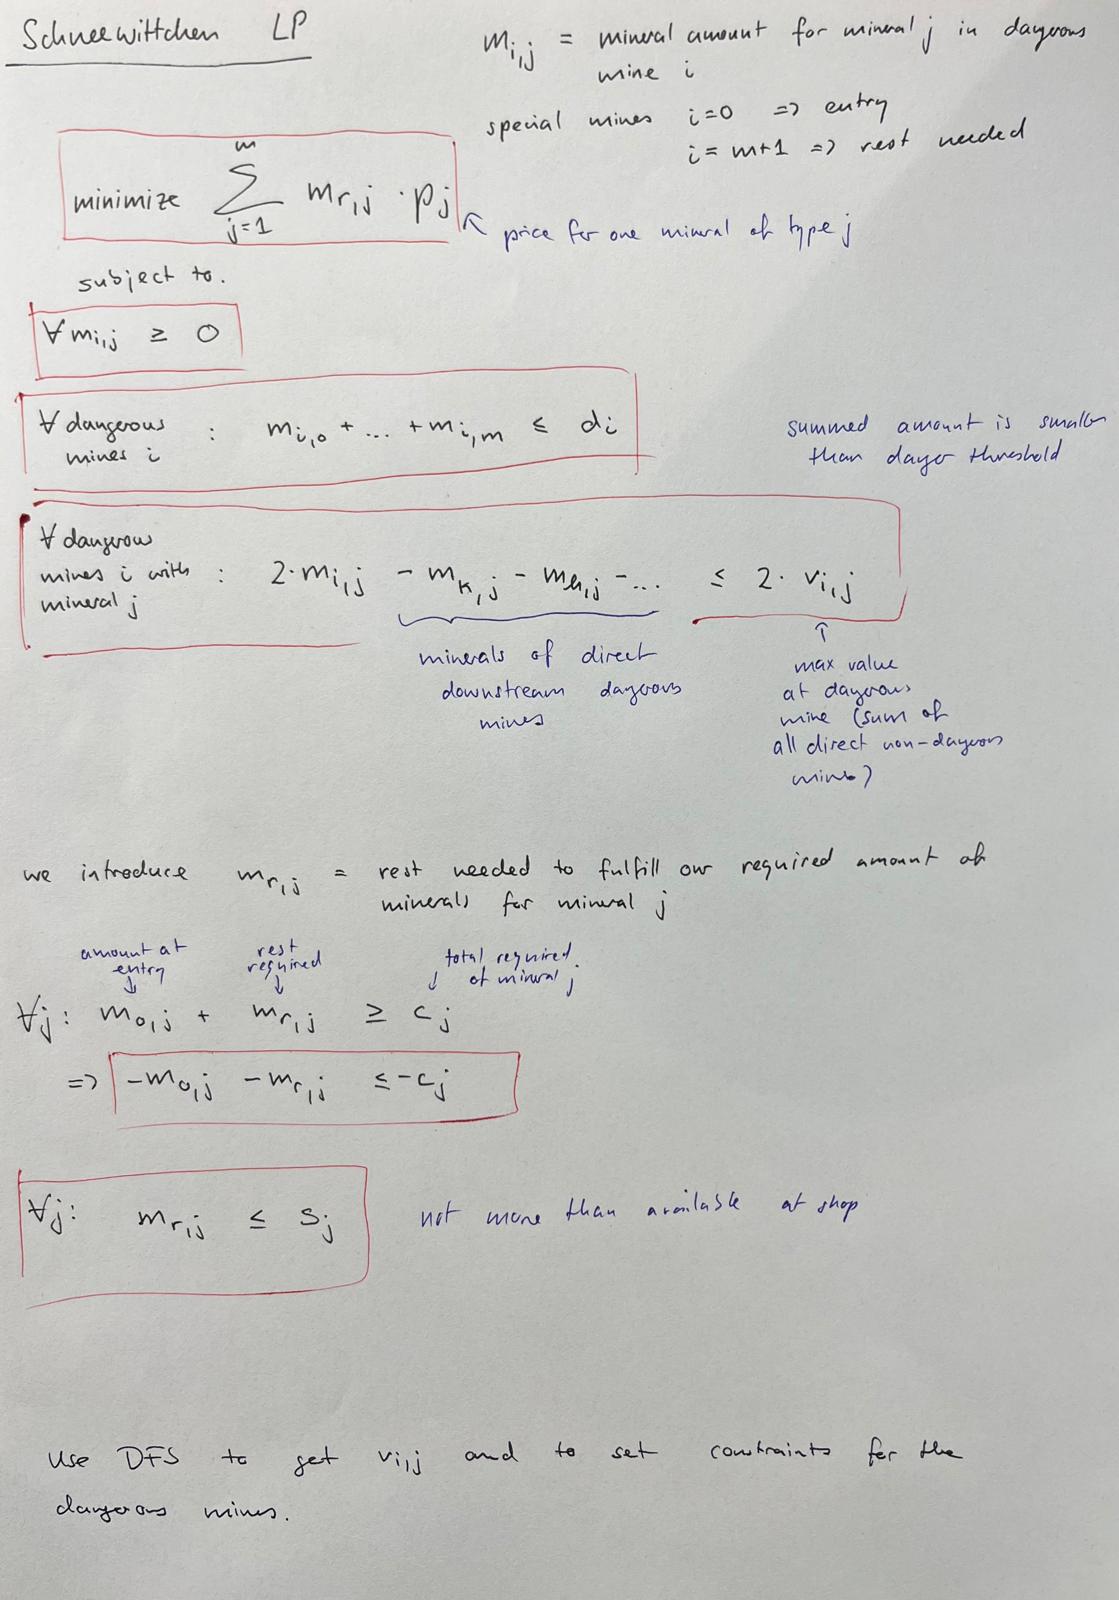 Schneewittchen LP
m_{i,j} = mineral amount for mineral j in dangerous
mine i
special mines i=0 => entry
i = m+1 => rest needed
minimize \sum_{j=1}^{m} m_{r,j} · p_j
↖ price for one mineral of type j
subject to.
∀ m_{i,j} ≥ 0
∀ dangerous
mines i : m_{i,0} + ... + m_{i,m} ≤ d_i
summed amount is smaller
than danger threshold
∀ dangerous
mines i with : 2·m_{i,j} - m_{k,j} - m_{l,j} - ... ≤ 2·v_{i,j}
mineral j
minerals of direct
downstream dangerous
mines
↑
max value
at dangerous
mine (sum of
all direct non-dangerous
mines)
we introduce m_{r,j} = rest needed to fulfill our required amount of
minerals for mineral j
amount at
entry
↓
rest
required
↓
total required
↓ of mineral j
∀j: m_{0,j} + m_{r,j} ≥ c_j
=> -m_{0,j} - m_{r,j} ≤ -c_j
∀j: m_{r,j} ≤ s_j
not more than available at shop
Use DFS to get v_{i,j} and to set constraints for the
dangerous mines.